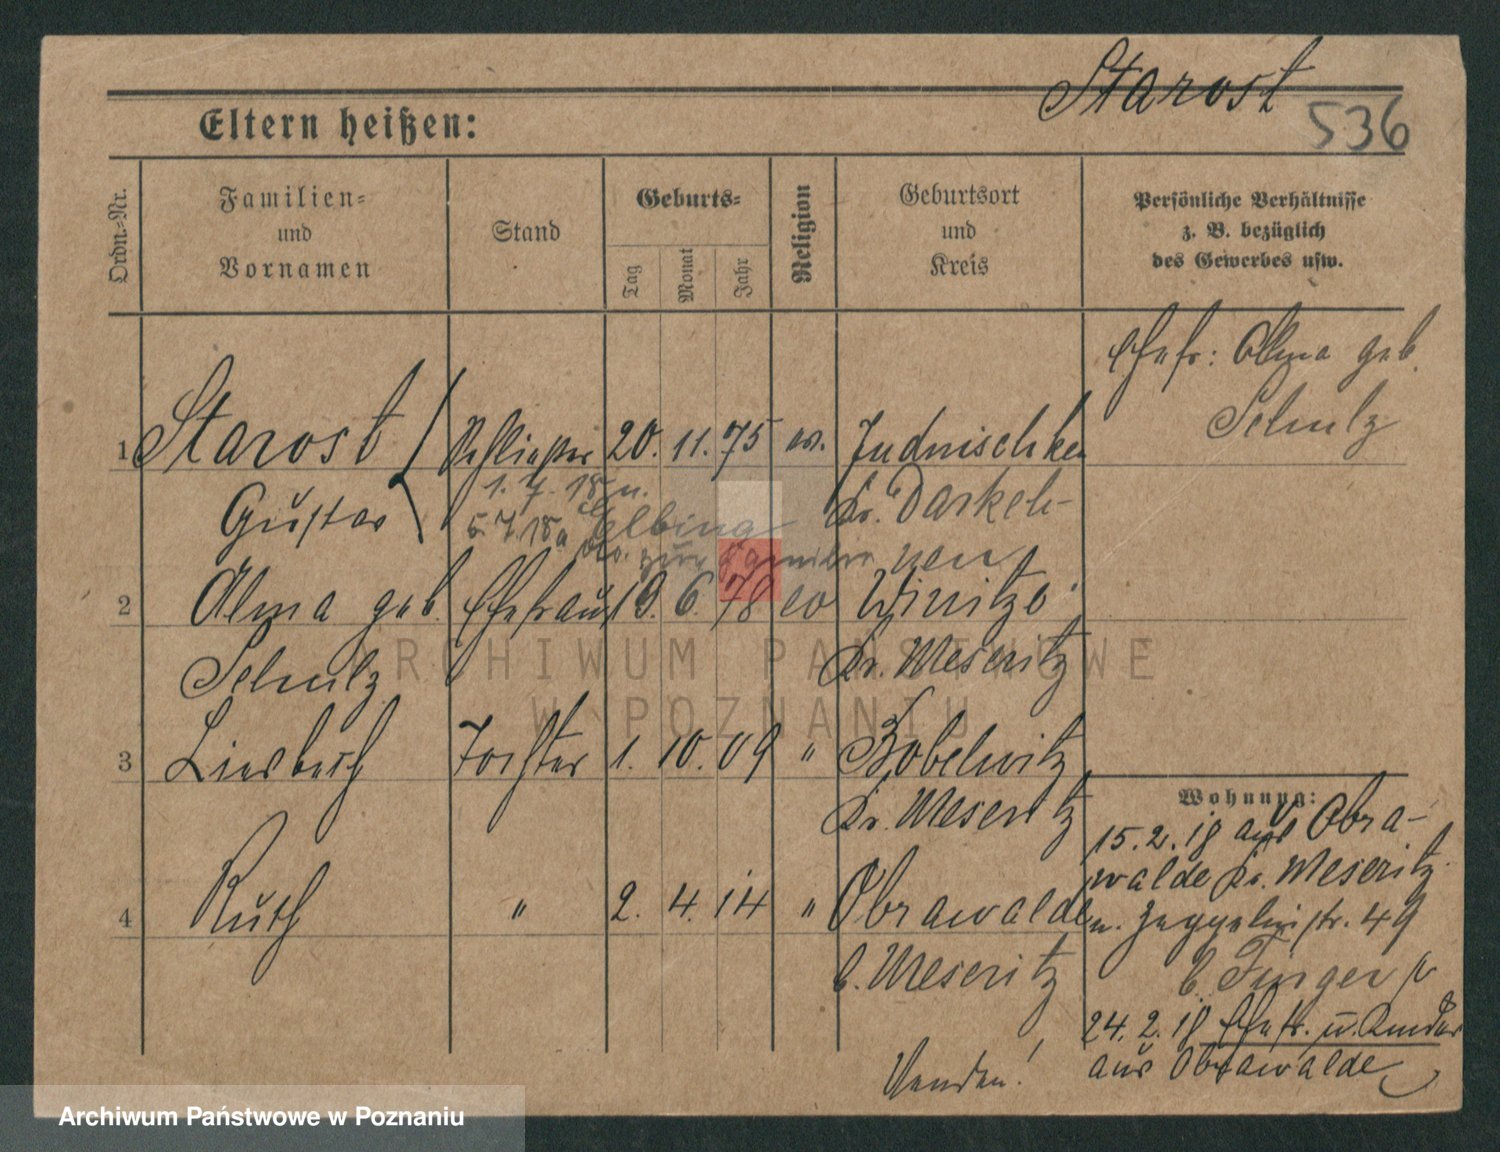 Starost
536
Eltern heißen:
Ordn.-Nr.
Familien-
und
Vornamen
Stand
Geburts-
Tag
Monat
Jahr
Religion
Geburtsort
und
Kreis
Persönliche Verhältnisse
z. B. bezüglich
des Gewerbes usw.
Ehefr: Alma geb.
Schulz
1 Starost Schließer 20. 11. 75 ev.
Gustav Kr.
1. 7. 18 n.
5. 7. 18 Elbing
zur
2 Alma geb. Ehefrau 19. 6. 78 ev Wirritze
Schulz Kr. Meseritz
3 Liesbeth Tochter 1. 10. 09 " Bobelwitz
Kr. Meseritz
4 Ruth " 2. 4. 14 " Obrawalde
b. Meseritz
Wohnung:
15. 2. 18 aus Obra-
walde Kr. Meseritz
n. Zeppelinstr. 49
b.
24. 2. 18 Ehefr. u. Kinder
aus Obrawalde
Wenden!
ARCHIWUM PAŃSTWOWE
W POZNANIU
Archiwum Państwowe w Poznaniu